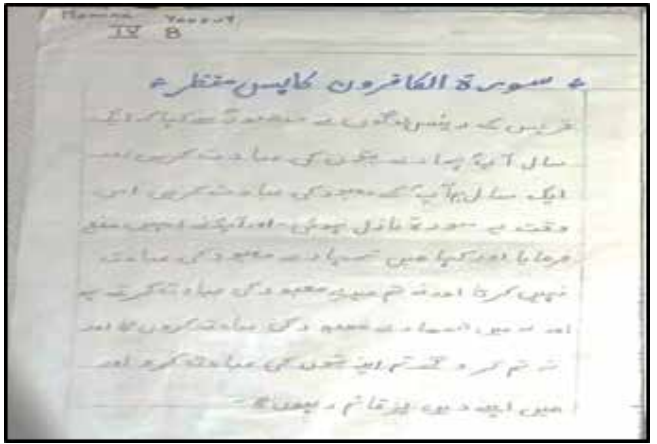 Yakout
IV B
سورۃ الکافرون کا پس منظر
قریش کے لوگوں نے حضورؐ سے کہا کہ ایک
سال آپؐ ہمارے بتوں کی عبادت کریں اور
ایک سال ہم آپؐ کے معبود کی عبادت کریں اس
وقت یہ سورۃ نازل ہوئی۔ اور آپؐ نے انہیں منع
فرمایا اور کہا میں تمہارے معبود کی عبادت
نہیں کرتا اور نہ تم میرے معبود کی عبادت کرتے ہو
اور نہ میں تمہارے معبود کی عبادت کروں گا اور
نہ تم کرو گے تم اپنے بتوں کی عبادت کرو اور
میں اپنے دین پر قائم ہوں